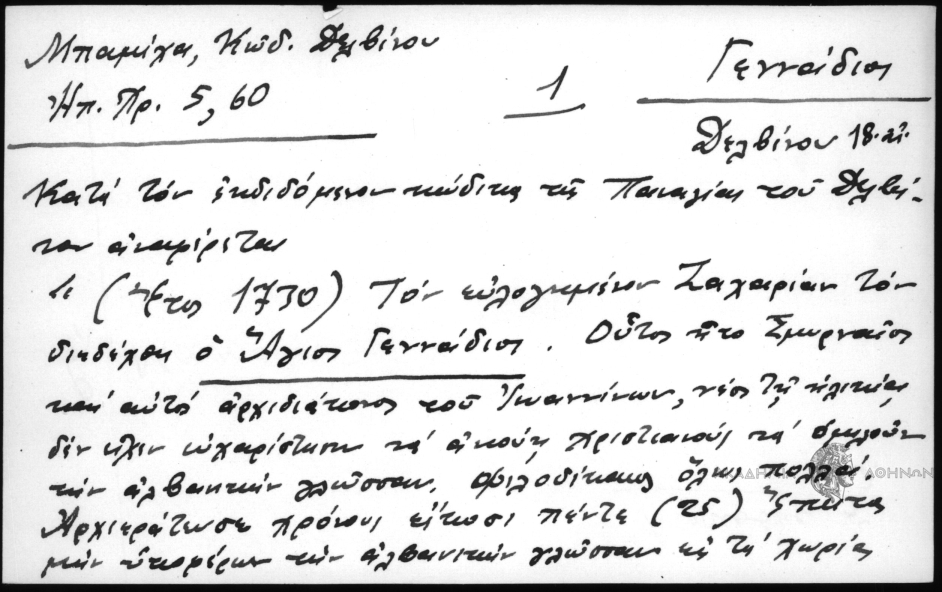 Μπαμίχα, Κώδ. Δελβίνου
Ἠπ. Χρ. 5, 60
1
Γεννάδιος
Δελβίνου 18. αἰ.
Κατά τόν ἐκδιδόμενον κώδικα τῆς Παναγίας τοῦ Δελβί-
νου ἀναφέρεται
(Ἔτος 1730) Τόν εὐλογημένον Ζαχαρίαν τόν
διεδέχθη ὁ Ἅγιος Γεννάδιος. Οὗτος ἦτο Σμυρναῖος
καί αὐτός ἀρχιδιάκονος τοῦ Ἰωαννίνων, νέος τῇ ἡλικίᾳ,
δέν εἶχεν εὐχαρίστησιν νά ἀκούῃ χριστιανούς νά ὁμιλοῦν
τήν ἀλβανικήν γλῶσσαν. Φιλόδικος ὅλως πολλά.
ΑΚΑΔΗΜΙΑ ΑΘΗΝΩΝ
Ἀρχιεράτευσε χρόνους εἴκοσι πέντε (25) Ἔπειτα
μήν ὑποφέρων τήν ἀλβανικήν γλῶσσαν εἰς τά χωρία